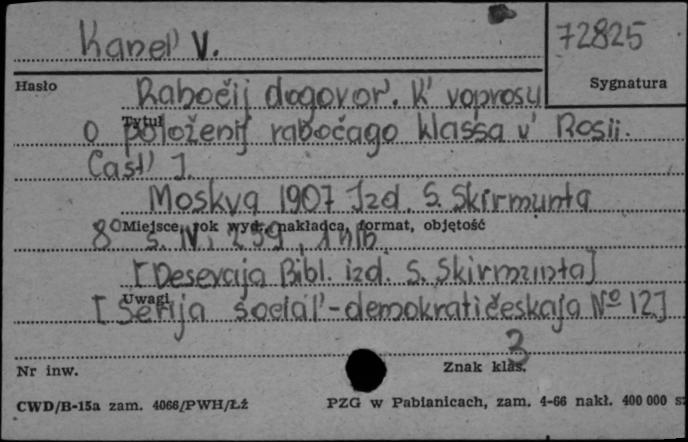 Kanel' V.
72825
Hasło
Sygnatura
Rabočij dogovor'. K' voprosu
Tytuł
o položenij rabočago klassa v' Rosii.
Čast' I.
Moskva 1907 Izd. S. Skirmunta
Miejsce, rok wyd., nakładca, format, objętość
8° s. IV, 259, 1 nlb.
[Deševaja Bibl. izd. S. Skirmunta]
Uwagi
[Serija social'-demokratičeskaja № 12]
3
Nr inw.
Znak klas.
CWD/B-15a zam. 4066/PWH/Łź
PZG w Pabianicach, zam. 4-66 nakł. 400 000 sz